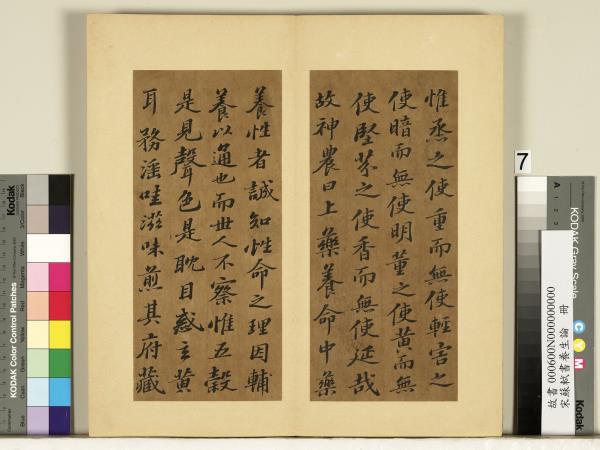 惟烝之使重而無使輕害之
使暗而無使明薰之使黃而無
使堅芬之使香而無使延哉
故神農曰上藥養命中藥
養性者誠知性命之理因輔
養以通也而世人不察惟五穀
是見聲色是耽目惑玄黃
耳務淫哇滋味煎其府藏
7
KODAK Gray Scale
A 1 2
C Y M
Kodak
故書 000600N000000000
宋蘇軾書養生論 冊
Kodak
KODAK Color Control Patches
Black
3/Color
White
Magenta
Red
Yellow
Green
Cyan
Blue